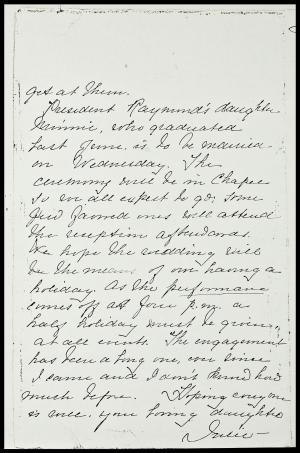 get at them.
President Raymond's daughter
Minnie, who graduated
last June, is to be married
on Wednesday. The
ceremony will be in Chapel
so we all expect to go; some
few favored ones will attend
the reception afterwards.
We hope the wedding will
be the means of our having a
holiday. As the performance
comes off at four p.m. a
half holiday must be given,
at all events. The engagement
has been a long one, ever since
I came and I don't know how
much before. Hoping everyone
is well, your loving daughter
Julia